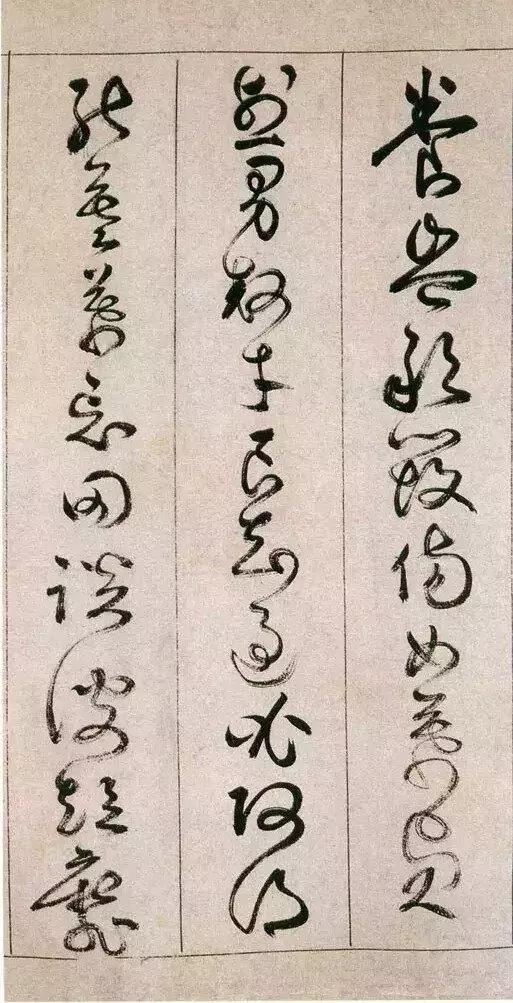 養豈敢毀傷女慕貞
烈男效才良知過必改得
能莫忘罔談彼短靡